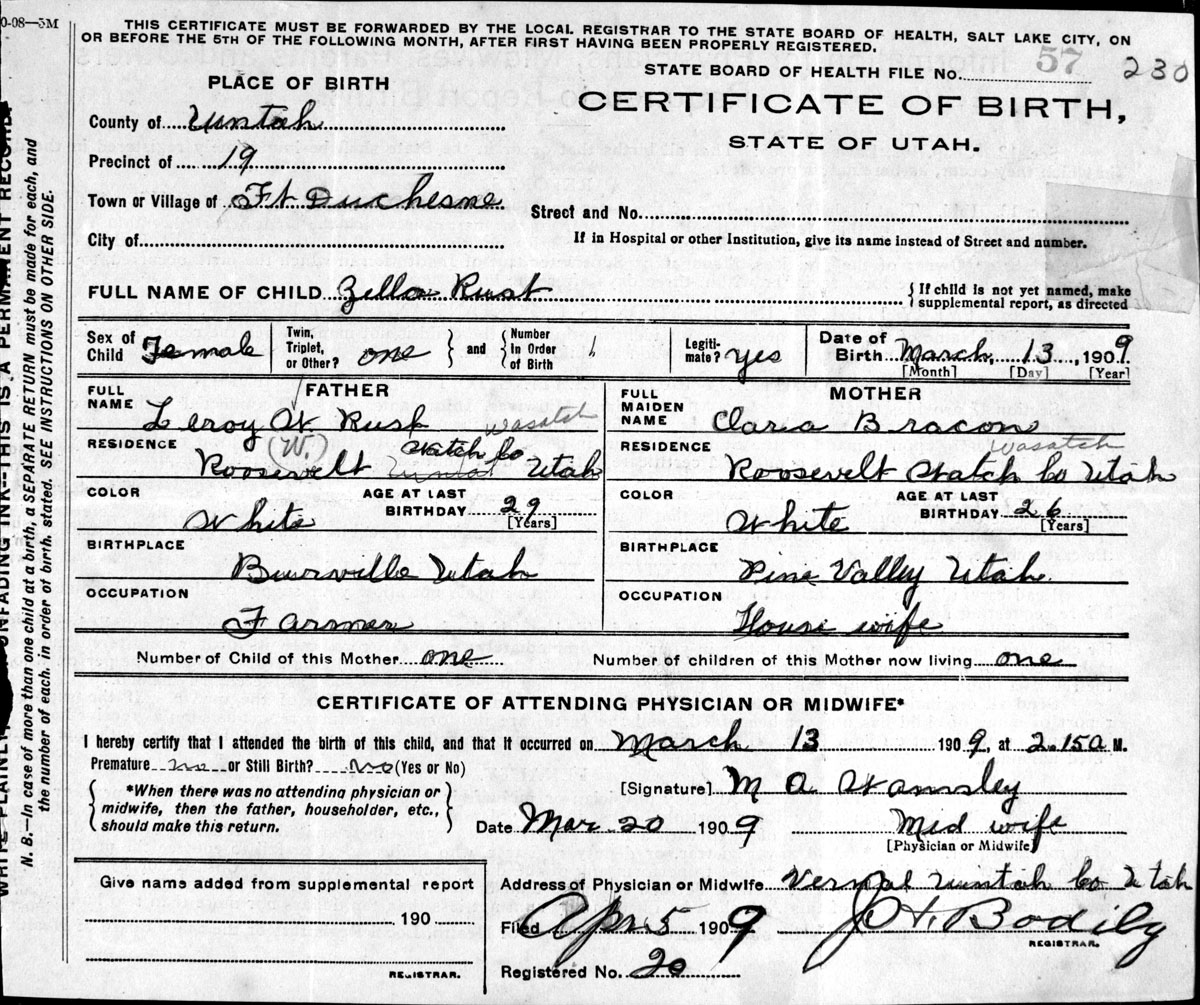 0-08—5M
THIS CERTIFICATE MUST BE FORWARDED BY THE LOCAL REGISTRAR TO THE STATE BOARD OF HEALTH, SALT LAKE CITY, ON
OR BEFORE THE 5TH OF THE FOLLOWING MONTH, AFTER FIRST HAVING BEEN PROPERLY REGISTERED.
STATE BOARD OF HEALTH FILE No. 57 230
PLACE OF BIRTH
CERTIFICATE OF BIRTH,
STATE OF UTAH.
County of Uintah
Precinct of 19
Town or Village of Ft Duchesne
Street and No.
City of
If in Hospital or other Institution, give its name instead of Street and number.
FULL NAME OF CHILD Zella Rust {If child is not yet named, make supplemental report, as directed
Sex of Child Female Twin, Triplet, or Other? one } and { Number in Order of Birth 1 Legitimate? yes Date of Birth March 13, 1909
[Month] [Day] [Year]
FATHER
FULL NAME Leroy W. Rust
(W.)
Wasatch
RESIDENCE Roosevelt Watch Co Utah
COLOR White AGE AT LAST BIRTHDAY 29 [Years]
BIRTHPLACE Burrville Utah
OCCUPATION Farmer
MOTHER
FULL MAIDEN NAME Clara Bracon
Wasatch
RESIDENCE Roosevelt Watch Co Utah
COLOR White AGE AT LAST BIRTHDAY 26 [Years]
BIRTHPLACE Pine Valley Utah
OCCUPATION House wife
Number of Child of this Mother one Number of children of this Mother now living one
CERTIFICATE OF ATTENDING PHYSICIAN OR MIDWIFE*
I hereby certify that I attended the birth of this child, and that it occurred on March 13 1909, at 2.15a M.
Premature no or Still Birth? No (Yes or No)
{ *When there was no attending physician or midwife, then the father, householder, etc., should make this return. }
[Signature] M A Wamsley
Date Mar. 20 1909 Mid wife
[Physician or Midwife]
Give name added from supplemental report
190
REGISTRAR.
Address of Physician or Midwife Vernal Uintah Co Utah
Filed Apr 5 1909 J H Bodily
REGISTRAR.
Registered No. 20
WRITE PLAINLY UNFADING INK—THIS IS A PERMANENT RECORD
N. B.—In case of more than one child at a birth, a SEPARATE RETURN must be made for each, and
the number of each, in order of birth, stated. SEE INSTRUCTIONS ON OTHER SIDE.